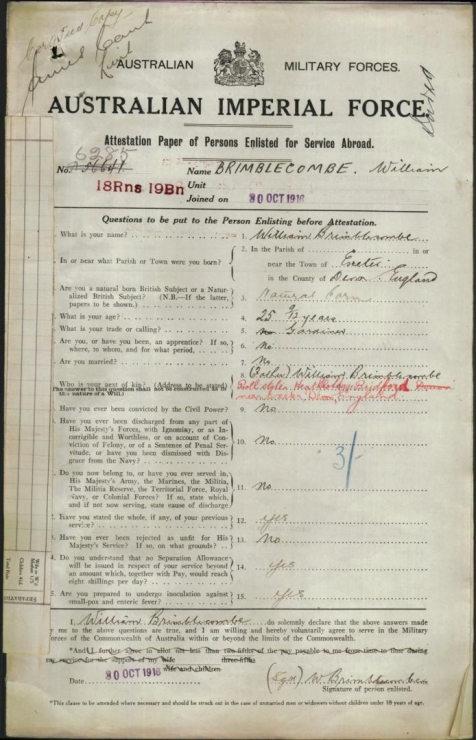 Certified Copy
AUSTRALIAN MILITARY FORCES.
AUSTRALIAN IMPERIAL FORCE
Attestation Paper of Persons Enlisted for Service Abroad.
No. 6285 Name BRIMBLECOMBE. William
18Rns 19Bn Unit
Joined on 30 OCT 1916
Questions to be put to the Person Enlisting before Attestation.
What is your name? 1. William Brimblecombe
In or near what Parish or Town were you born? 2. In the Parish of in or
near the Town of Exeter
in the County of Devon England
Are you a natural born British Subject or a Naturalized British Subject? (N.B.—If the latter, papers to be shown.) 3. Natural born
What is your age? 4. 25 9/12 years
What is your trade or calling? 5. Gardiner
Are you, or have you been, an apprentice? If so, where, to whom, and for what period, 6. No
Are you married? 7. No
Who is your next of kin? (Address to be stated) 8. (Father) William Brimblecombe
near Exeter, Devon, England
The answer to this question shall not be construed as in the nature of a Will.
Have you ever been convicted by the Civil Power? 9. No
Have you ever been discharged from any part of
His Majesty's Forces, with Ignominy, or as Incorrigible
and Worthless, or on account of Conviction
of Felony, or of a Sentence of Penal Servitude,
or have you been dismissed with Disgrace
from the Navy? 10. No.
3/-
Do you now belong to, or have you ever served in,
His Majesty's Army, the Marines, the Militia,
The Militia Reserve, the Territorial Force, Royal
Navy, or Colonial Forces? If so, state which,
and if not now serving, state cause of discharge 11. No.
Have you stated the whole, if any, of your previous service? 12. yes
Have you ever been rejected as unfit for His
Majesty's Service? If so, on what grounds? 13. No
Do you understand that no Separation Allowance
will be issued in respect of your service beyond
an amount which, together with Pay, would reach
eight shillings per day? 14. yes
Are you prepared to undergo inoculation against
small-pox and enteric fever? 15. yes
I, William Brimblecombe do solemnly declare that the above answers made
by me to the above questions are true, and I am willing and hereby voluntarily agree to serve in the Military
Forces of the Commonwealth of Australia within or beyond the limits of the Commonwealth.
*And I further agree to allot not less than two-fifths of the pay payable to me from time to time during
my service for the support of my wife three-fifths
wife and children
Date 30 OCT 1916 (Sgn) W. Brimblecombe
Signature of person enlisted.
*This clause to be amended where necessary and should be struck out in the case of unmarried men or widowers without children under 18 years of age.